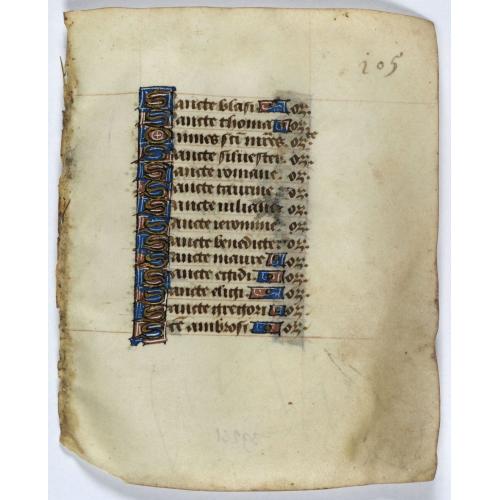 105
Sancte blasi or.
Sancte thoma or.
Omnes sci mres or. te
Sancte siluester or.
Sancte romane or.
Sancte taurine or.
Sancte iuliane or.
Sancte ieronime or.
Sancte benedicte or.
Sancte maure or.
Sancte egidi or.
Sancte eligi or.
Sancte gregori or.
Scte ambrosi or.